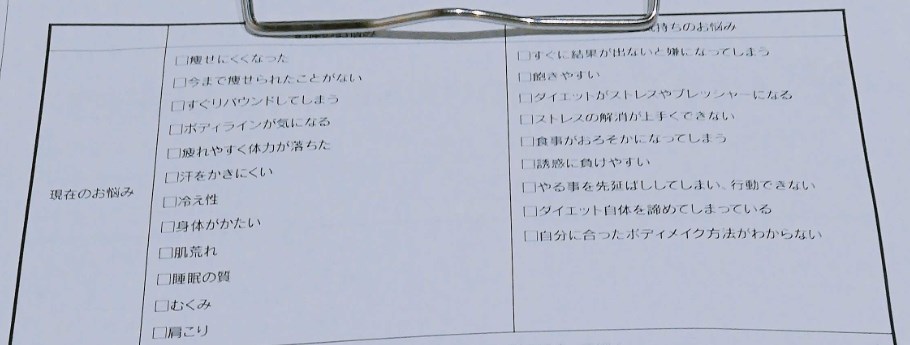 持ちのお悩み
現在のお悩み
□痩せにくくなった
□今まで痩せられたことがない
□すぐリバウンドしてしまう
□ボディラインが気になる
□疲れやすく体力が落ちた
□汗をかきにくい
□冷え性
□身体がかたい
□肌荒れ
□睡眠の質
□むくみ
□肩こり
□すぐに結果が出ないと嫌になってしまう
□飽きやすい
□ダイエットがストレスやプレッシャーになる
□ストレスの解消が上手くできない
□食事がおろそかになってしまう
□誘惑に負けやすい
□やる事を先延ばししてしまい、行動できない
□ダイエット自体を諦めてしまっている
□自分に合ったボディメイク方法がわからない